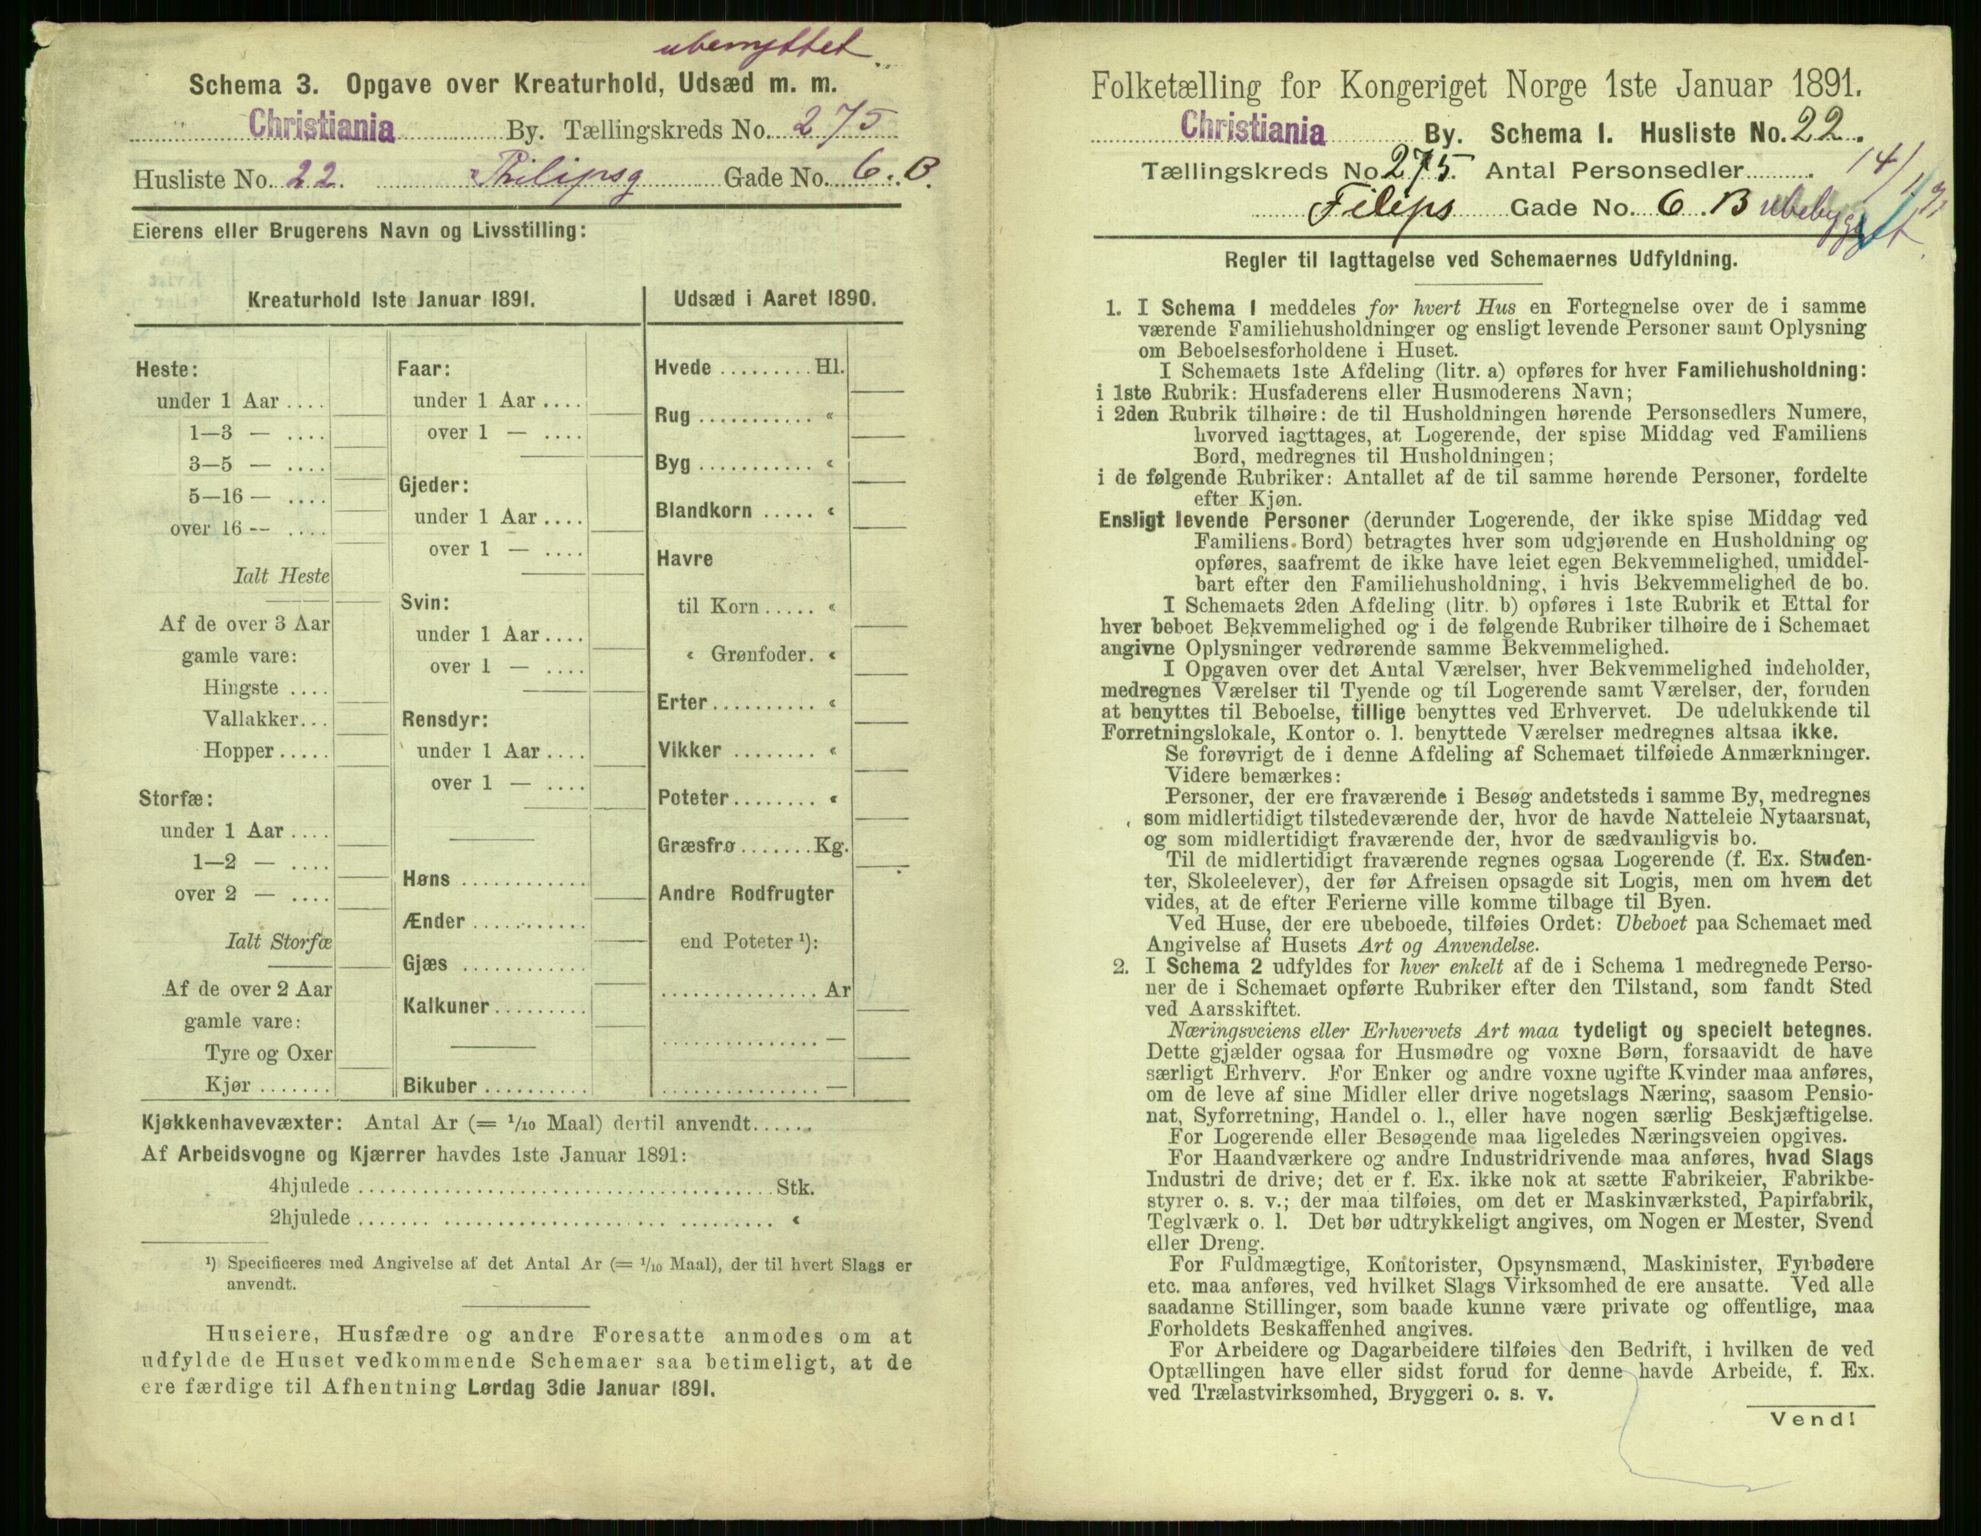 ubenyttet
Schema 3. Opgave over Kreaturhold, Udsæd m. m.
Christiania By. Tællingskreds No. 275
Husliste No. 22. Philipsg Gade No. 6. B.
Eierens eller Brugerens Navn og Livsstilling:
Kreaturhold 1ste Januar 1891.
Heste:
under 1 Aar ....
1—3 — ....
3—5 — ....
5—16 — ....
over 16 -- ....
Ialt Heste
Af de over 3 Aar
gamle vare:
Hingste ....
Vallakker...
Hopper.....
Storfæ:
under 1 Aar ....
1—2 — ....
over 2 — ....
Ialt Storfæ
Af de over 2 Aar
gamle vare:
Tyre og Oxer
Kjør .......
Faar:
under 1 Aar ....
over 1 — ....
Gjeder:
under 1 Aar ....
over 1 — ....
Svin:
under 1 Aar ....
over 1 — ....
Rensdyr:
under 1 Aar ....
over 1 — ....
Høns ............
Ænder ...........
Gjæs ............
Kalkuner.........
Bikuber ..........
Udsæd i Aaret 1890.
Hvede ......... Hl.
Rug ........... «
Byg ........... «
Blandkorn ..... «
Havre
til Korn ..... «
« Grønfoder. «
Erter.......... «
Vikker ........ «
Poteter........ «
Græsfrø ....... Kg.
Andre Rodfrugter
end Poteter ¹):
............... Ar
............... —
............... —
Kjøkkenhavevæxter: Antal Ar (= 1/10 Maal) dertil anvendt......
Af Arbeidsvogne og Kjærrer havdes 1ste Januar 1891:
4hjulede ........................................ Stk.
2hjulede ........................................ «
¹) Specificeres med Angivelse af det Antal Ar (= 1/10 Maal), der til hvert Slags er
anvendt.
Huseiere, Husfædre og andre Foresatte anmodes om at
udfylde de Huset vedkommende Schemaer saa betimeligt, at de
ere færdige til Afhentning Lørdag 3die Januar 1891.
Folketælling for Kongeriget Norge 1ste Januar 1891.
Christiania By. Schema I. Husliste No. 22.
Tællingskreds No. 275. Antal Personsedler.......... 14/1 91
Filips Gade No. 6. B ubebygget.
Regler til Iagttagelse ved Schemaernes Udfyldning.
1. I Schema I meddeles for hvert Hus en Fortegnelse over de i samme
værende Familiehusholdninger og ensligt levende Personer samt Oplysning
om Beboelsesforholdene i Huset.
I Schemaets 1ste Afdeling (litr. a) opføres for hver Familiehusholdning:
i 1ste Rubrik: Husfaderens eller Husmoderens Navn;
i 2den Rubrik tilhøire: de til Husholdningen hørende Personsedlers Numere,
hvorved iagttages, at Logerende, der spise Middag ved Familiens
Bord, medregnes til Husholdningen;
i de følgende Rubriker: Antallet af de til samme hørende Personer, fordelte
efter Kjøn.
Ensligt levende Personer (derunder Logerende, der ikke spise Middag ved
Familiens Bord) betragtes hver som udgjørende en Husholdning og
opføres, saafremt de ikke have leiet egen Bekvemmelighed, umiddel-
bart efter den Familiehusholdning, i hvis Bekvemmelighed de bo.
I Schemaets 2den Afdeling (litr. b) opføres i 1ste Rubrik et Ettal for
hver beboet Bekvemmelighed og i de følgende Rubriker tilhøire de i Schemaet
angivne Oplysninger vedrørende samme Bekvemmelighed.
I Opgaven over det Antal Værelser, hver Bekvemmelighed indeholder,
medregnes Værelser til Tyende og til Logerende samt Værelser, der, foruden
at benyttes til Beboelse, tillige benyttes ved Erhvervet. De udelukkende til
Forretningslokale, Kontor o. l. benyttede Værelser medregnes altsaa ikke.
Se forøvrigt de i denne Afdeling af Schemaet tilføiede Anmærkninger.
Videre bemærkes:
Personer, der ere fraværende i Besøg andetsteds i samme By, medregnes
som midlertidigt tilstedeværende der, hvor de havde Natteleie Nytaarsnat,
og som midlertidigt fraværende der, hvor de sædvanligvis bo.
Til de midlertidigt fraværende regnes ogsaa Logerende (f. Ex. Studen-
ter, Skoleelever), der før Afreisen opsagde sit Logis, men om hvem det
vides, at de efter Ferierne ville komme tilbage til Byen.
Ved Huse, der ere ubeboede, tilføies Ordet: Ubeboet paa Schemaet med
Angivelse af Husets Art og Anvendelse.
2. I Schema 2 udfyldes for hver enkelt af de i Schema 1 medregnede Perso-
ner de i Schemaet opførte Rubriker efter den Tilstand, som fandt Sted
ved Aarsskiftet.
Næringsveiens eller Erhvervets Art maa tydeligt og specielt betegnes.
Dette gjælder ogsaa for Husmødre og voxne Børn, forsaavidt de have
særligt Erhverv. For Enker og andre voxne ugifte Kvinder maa anføres,
om de leve af sine Midler eller drive nogetslags Næring, saasom Pensio-
nat, Syforretning, Handel o. l., eller have nogen særlig Beskjæftigelse.
For Logerende eller Besøgende maa ligeledes Næringsveien opgives.
For Haandværkere og andre Industridrivende maa anføres, hvad Slags
Industri de drive; det er f. Ex. ikke nok at sætte Fabrikeier, Fabrikbe-
styrer o. s. v.; der maa tilføies, om det er Maskinværksted, Papirfabrik,
Teglværk o. l. Det bør udtrykkeligt angives, om Nogen er Mester, Svend
eller Dreng.
For Fuldmægtige, Kontorister, Opsynsmænd, Maskinister, Fyrbødere
etc. maa anføres, ved hvilket Slags Virksomhed de ere ansatte. Ved alle
saadanne Stillinger, som baade kunne være private og offentlige, maa
Forholdets Beskaffenhed angives.
For Arbeidere og Dagarbeidere tilføies den Bedrift, i hvilken de ved
Optællingen have eller sidst forud for denne havde Arbeide, f. Ex.
ved Trælastvirksomhed, Bryggeri o. s. v.
Vend!